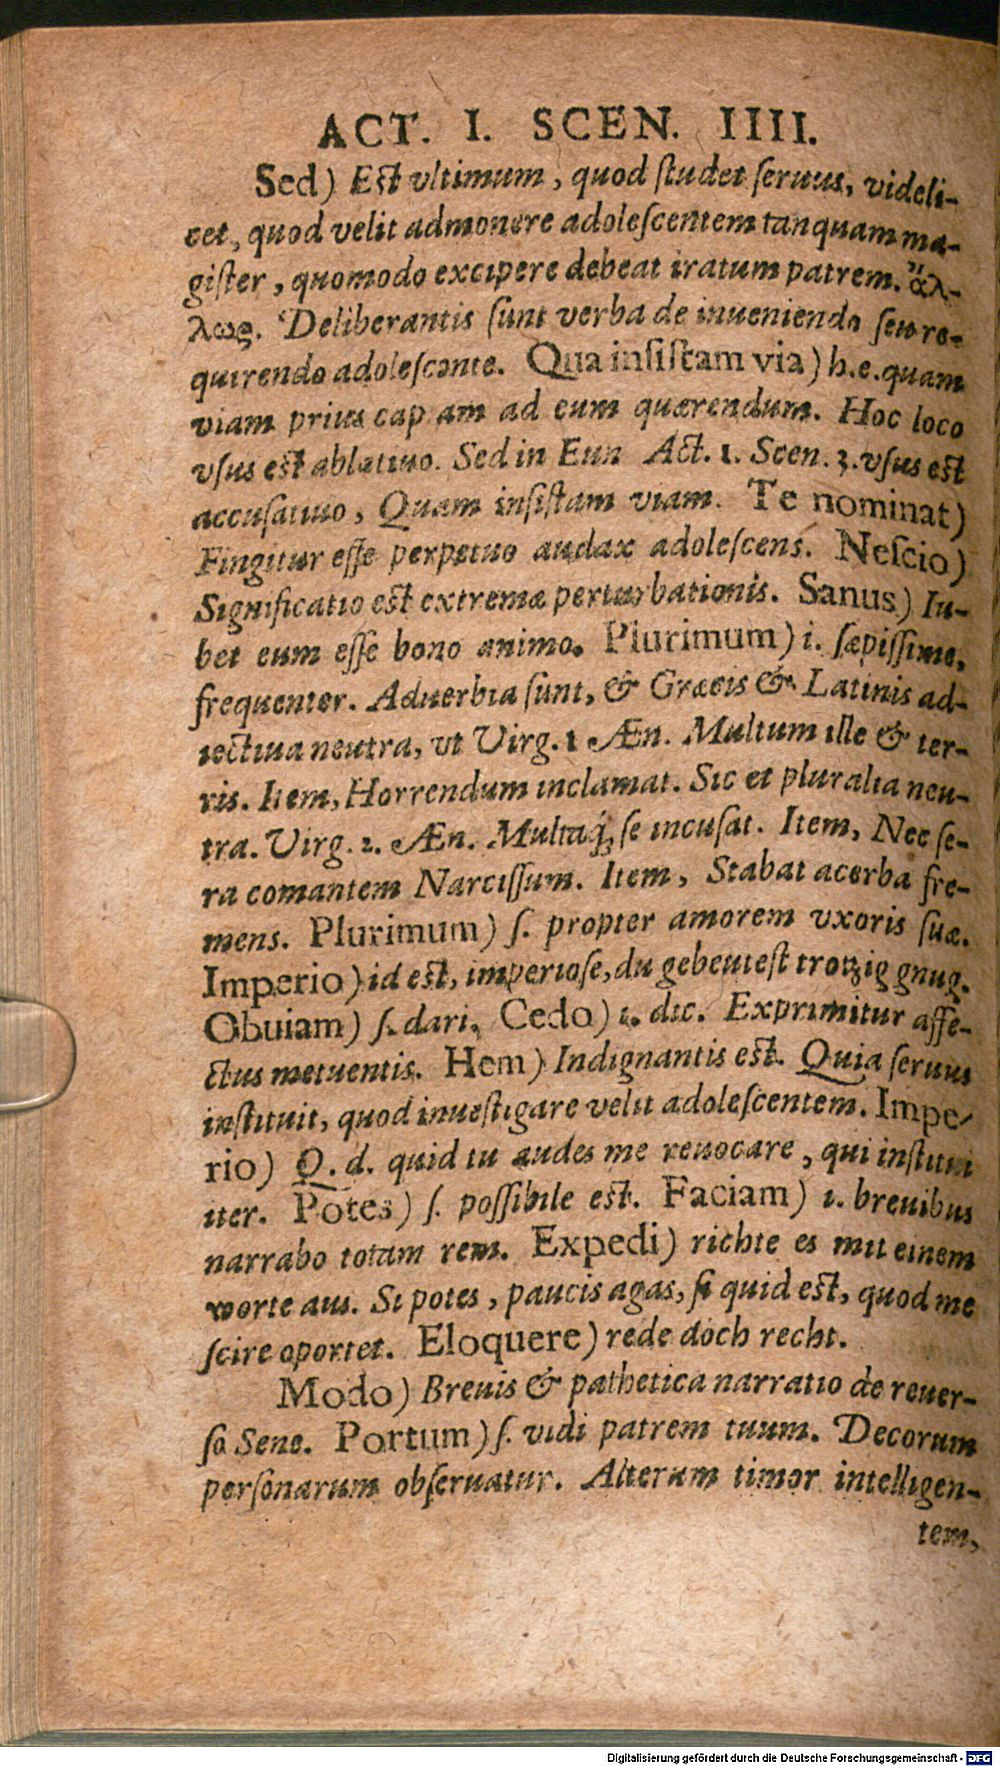 ACT. I. SCEN. IIII.
Sed) Eſt vltimum, quod ſtudet ſeruus, videli-
cet, quod velit admonere adoleſcentem tanquam ma-
giſter, quomodo excipere debeat iratum patrem. ἄλ-
λως. Deliberantis ſunt verba de inueniendo ſeu re-
quirendo adoleſcente. Qua inſiſtam via) h.e. quam
viam prius capiam ad eum quærendum. Hoc loco
vſus eſt ablatiuo. Sed in Eun Act. 1. Scen. 3. vſus eſt
accuſatiuo, Quam inſiſtam viam. Te nominat)
Fingitur eſſe perpetuo audax adoleſcens. Neſcio)
Significatio eſt extremæ perturbationis. Sanus) Iu-
bet eum eſſe bono animo. Plurimum) i. ſæpiſſime,
frequenter. Aduerbia ſunt, & Græcis & Latinis ad-
iectiua neutra, vt Virg. 1 Æn. Multum ille & ter-
ris. Item, Horrendum inclamat. Sic et pluralia neu-
tra. Virg. 2. Æn. Multaq́; ſe incuſat. Item, Nec ſe-
ra comantem Narciſſum. Item, Stabat acerba fre-
mens. Plurimum) ſ. propter amorem vxoris ſuæ.
Imperio) id eſt, imperioſe, du gebeuteſt trotzig gnug.
Obuiam) ſ. dari. Cedo) i. dic. Exprimitur affe-
ctus metuentis. Hem) Indignantis eſt. Quia ſeruus
inſtituit, quod inueſtigare velit adoleſcentem. Impe-
rio) Q. d. quid tu audes me reuocare, qui inſtitui
iter. Potes) ſ. poſſibile eſt. Faciam) i. breuibus
narrabo totam rem. Expedi) richte es mit einem
worte aus. Si potes, paucis agas, ſi quid eſt, quod me
ſcire oportet. Eloquere) rede doch recht.
Modo) Breuis & pathetica narratio de reuer-
ſo Sene. Portum) ſ. vidi patrem tuum. Decorum
perſonarum obſeruatur. Alterum timor intelligen-
tem,
Digitalisierung gefördert durch die Deutsche Forschungsgemeinschaft - DFG